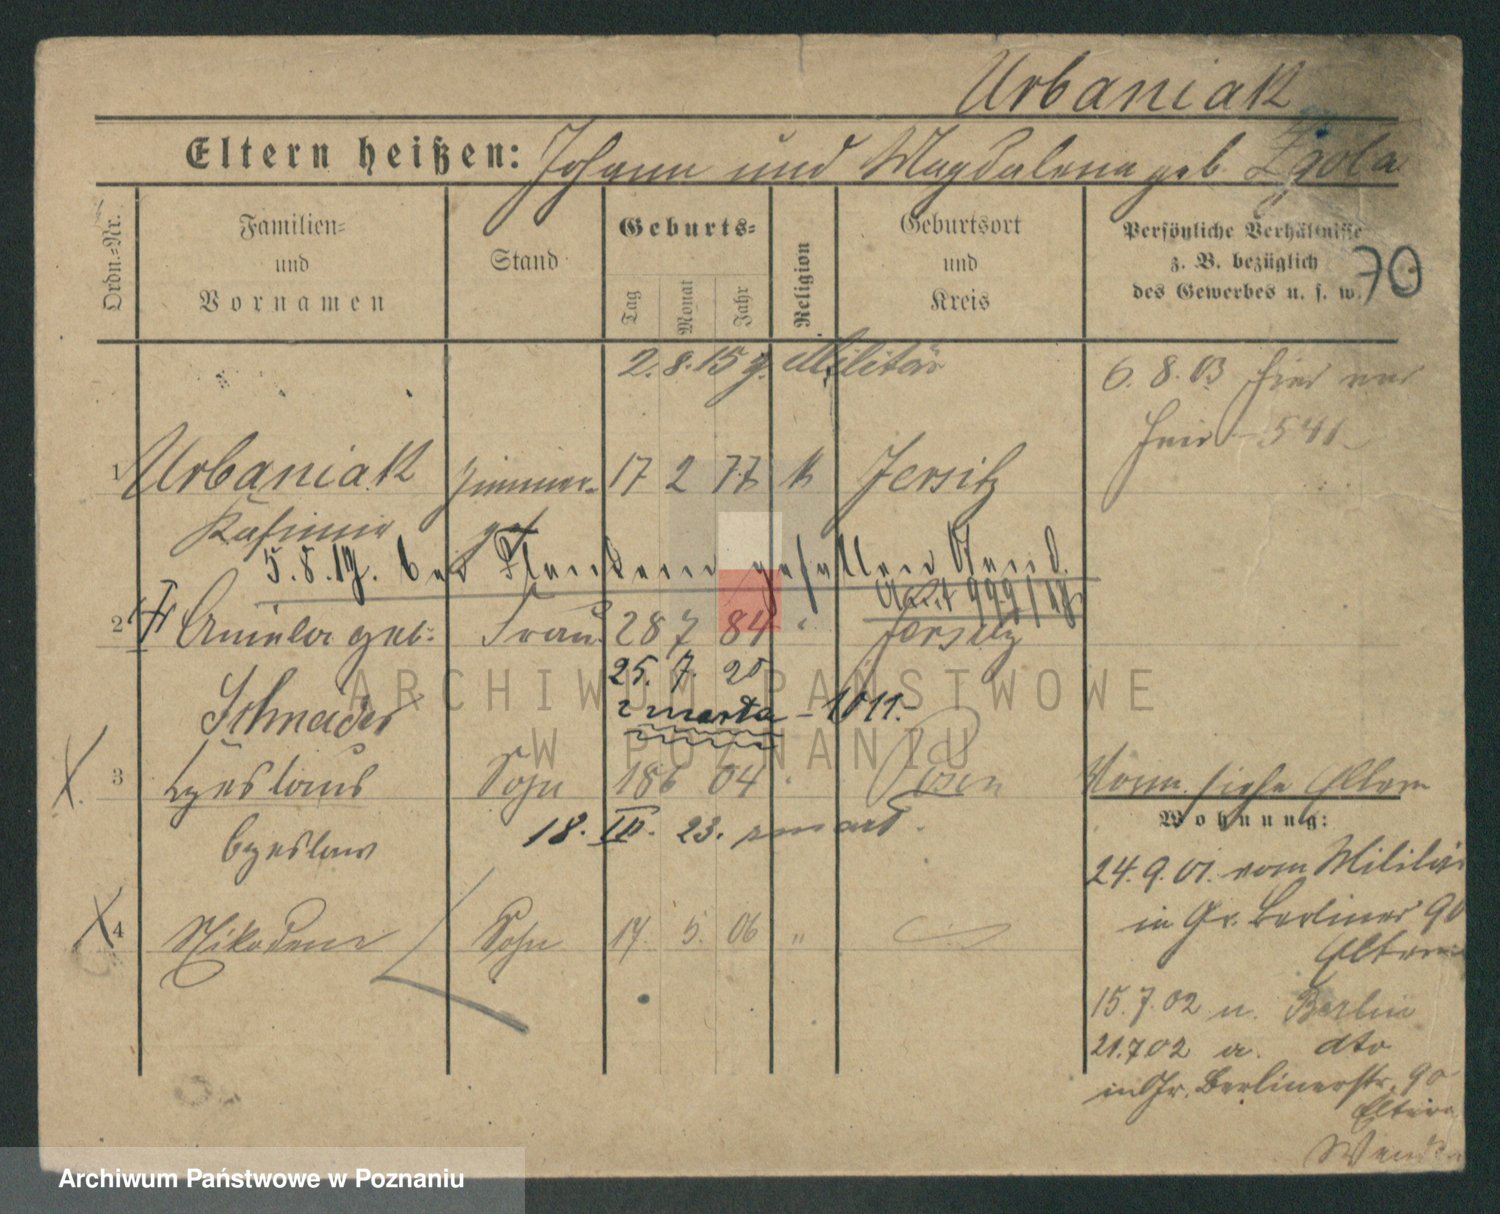 Urbaniak
Eltern heißen: Johann und Magdalena geb. Zgola
Ordn.=Nr.
Familien=
und
Vornamen
Stand
Geburts=
Tag
Monat
Jahr
Religion
Geburtsort
und
Kreis
Persönliche Verhältnisse
z. B. bezüglich
des Gewerbes u. s. w.
70
2.8.15 z. Militär
6.8.03
541
1 Urbaniak Zimmer- 17 2 77 k Jersitz
Kasimir ges
5.8.17. bei Flandern gefallen Stand.
Akt 999/18
2 Aniela geb. Frau 28 7 84 " Jersitz
25. 7. 20
Schneider
zmarła - 1011.
3 Czeslaus Sohn 18 6 04 " Posen
Vorm. siehe Eltern
Czeslaw
18. IV. 23. zmarł.
Wohnung:
24.9.01. vom Militär
in Gr. Berliner 90
Eltern
4 Nikodem Sohn 14. 5. 06 "
15.7.02 n. Berlin
21.7.02 a. dto
in Gr. Berlinerstr. 90
Eltern
ARCHIWUM PAŃSTWOWE
W POZNANIU
Archiwum Państwowe w Poznaniu